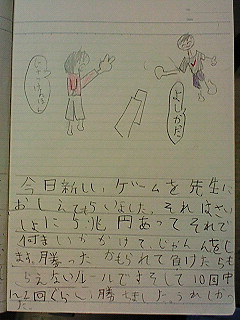 じゃんけんほい
よしかた
今日新しいゲームを先生に
おしえてもらいました。それはさい
しょに5兆円あってそれで
何まいかかけて、じゃんんをし
ま、勝ったかもられて負けたらも
らえないルールでよそして10回中
に2回ぐらい勝ちました。うれしかっ
た。